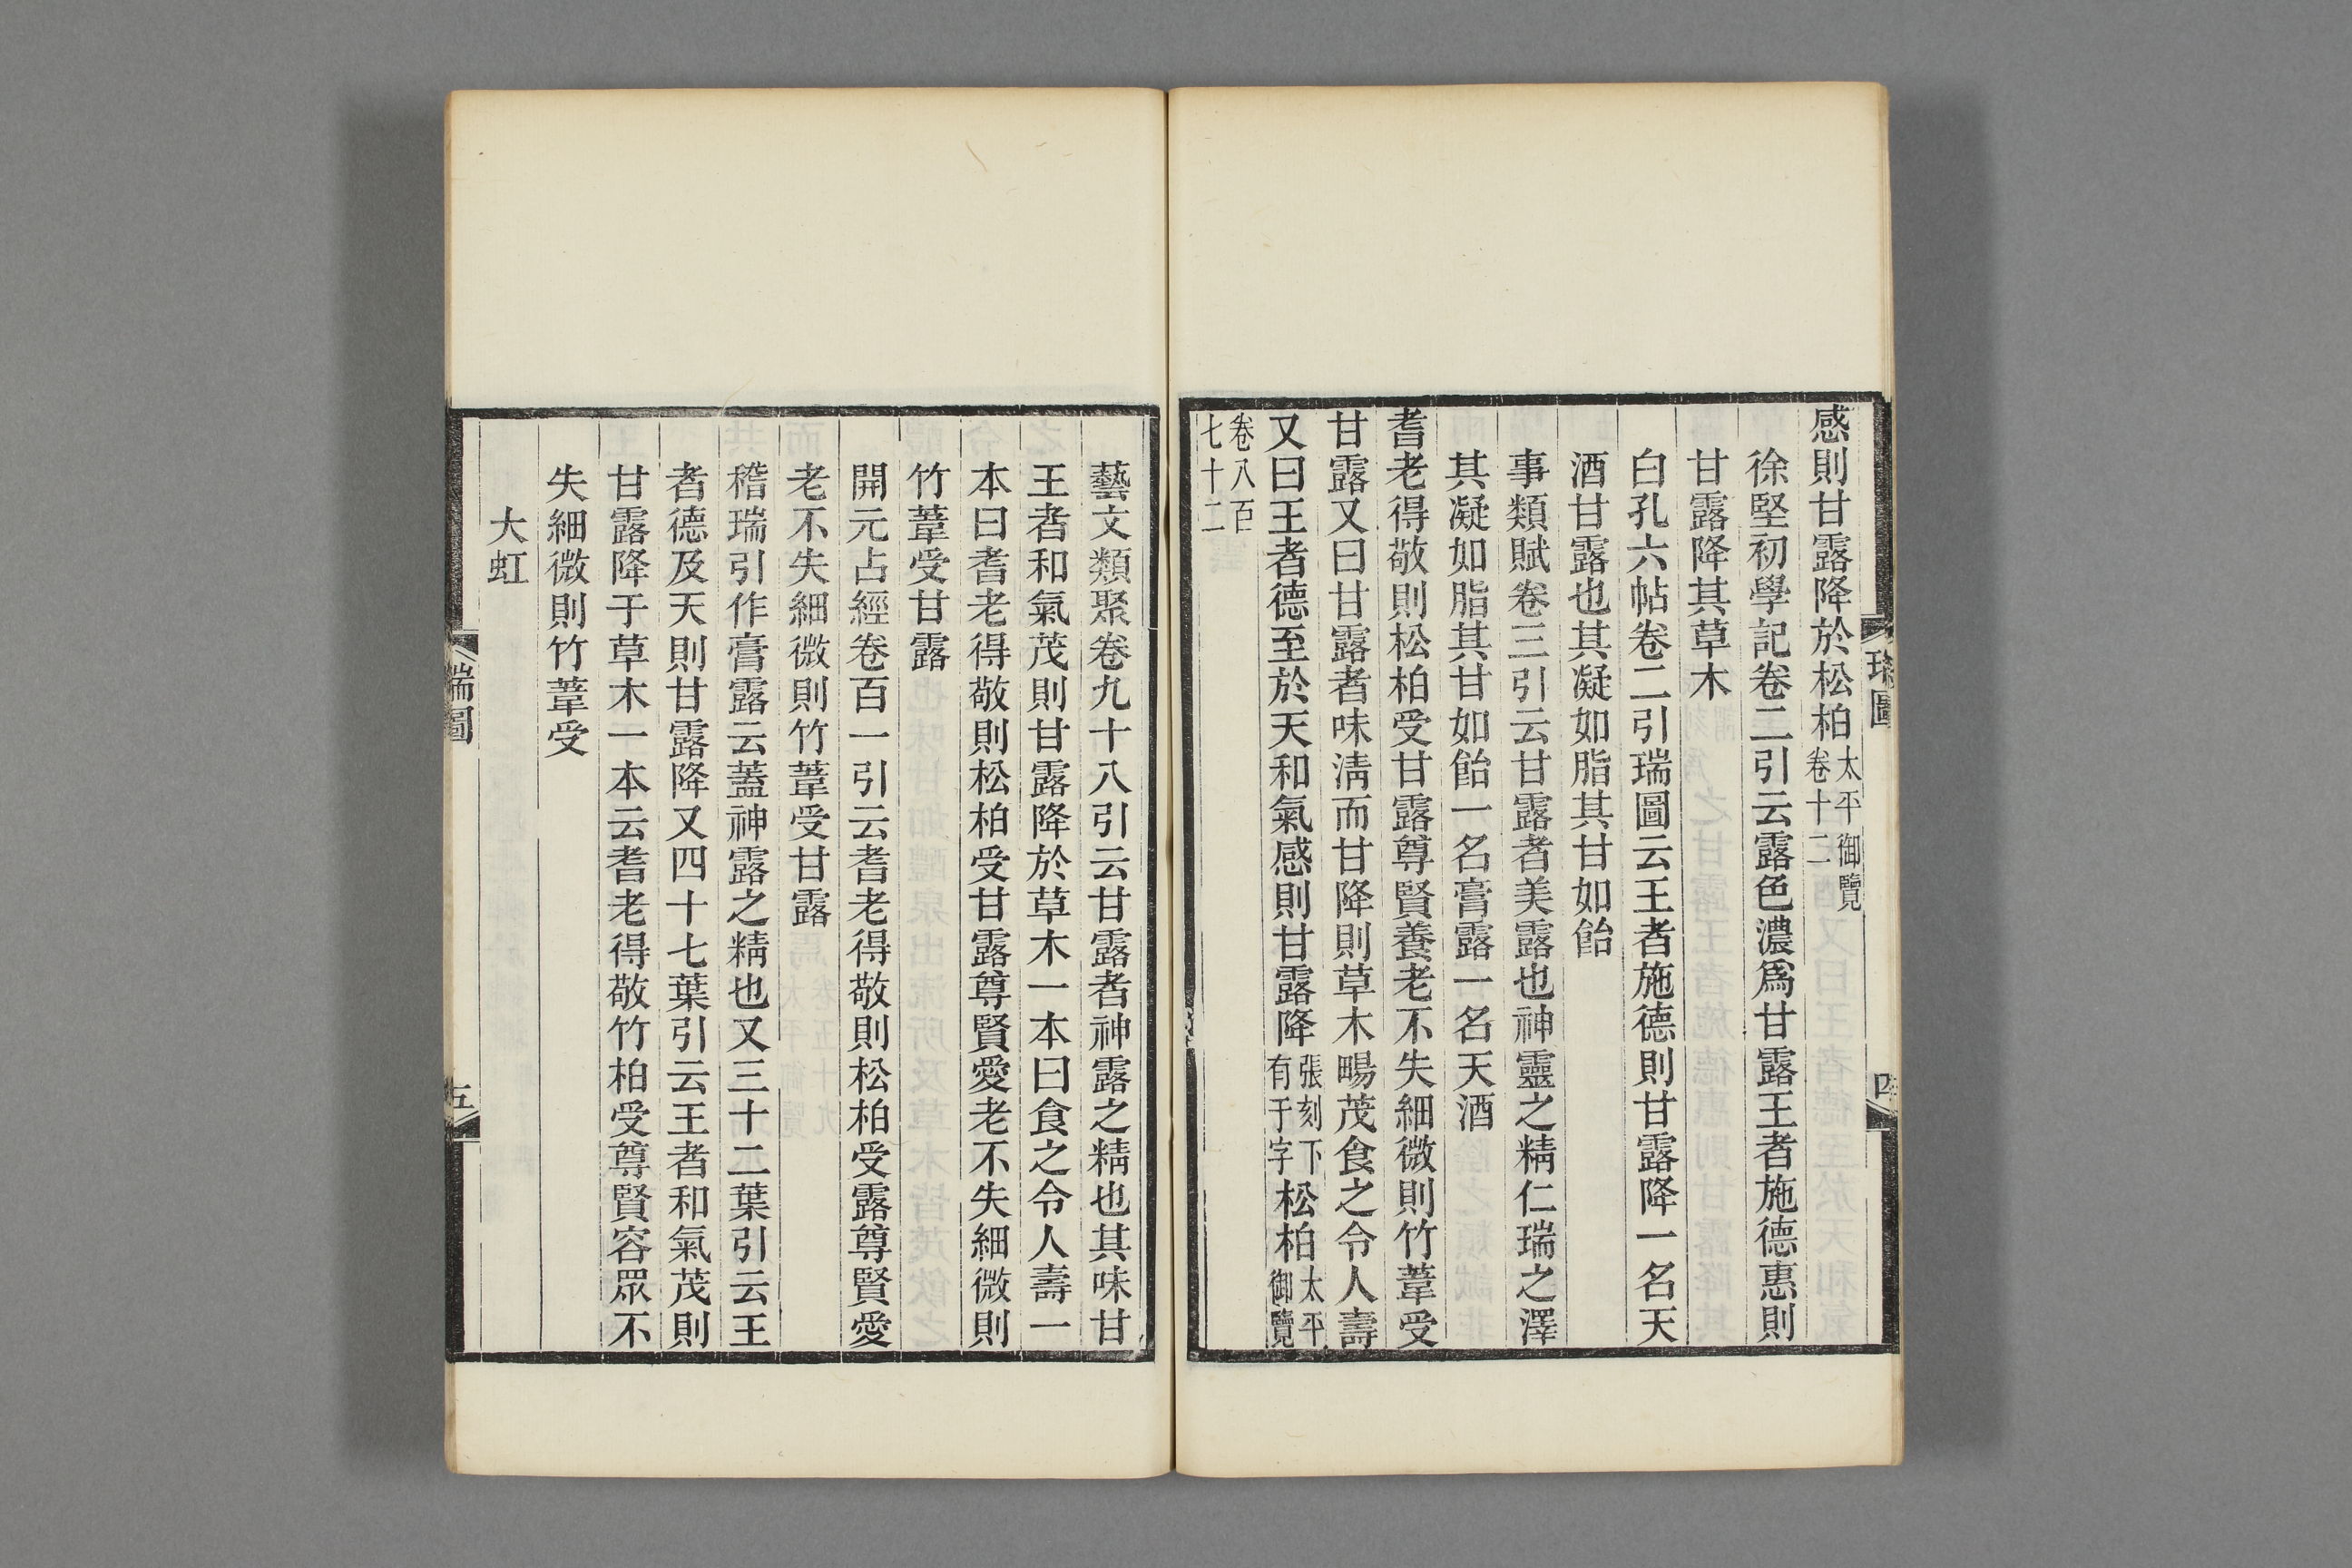 感則甘露降於松柏太平御覽卷十二
徐堅初學記卷二引云露色濃爲甘露王者施德惠則
甘露降其草木
白孔六帖卷二引瑞圖云王者施德則甘露降一名天
酒甘露也其凝如脂其甘如飴
事類賦卷三引云甘露者美露也神靈之精仁瑞之澤
其凝如脂其甘如飴一名膏露一名天酒
耆老得敬則松柏受甘露尊賢養老不失細微則竹葦受
甘露又曰甘露者味淸而甘降則草木暢茂食之令人壽
又曰王者德至於天和氣感則甘露降張刻下有于字松柏太平御覽
卷八百七十二
瑞圖
四
藝文類聚卷九十八引云甘露者神露之精也其味甘
王者和氣茂則甘露降於草木一本曰食之令人壽一
本曰耆老得敬則松柏受甘露尊賢愛老不失細微則
竹葦受甘露
開元占經卷百一引云耆老得敬則松柏受露尊賢愛
老不失細微則竹葦受甘露
稽瑞引作膏露云蓋神露之精也又三十二葉引云王
者德及天則甘露降又四十七葉引云王者和氣茂則
甘露降于草木一本云耆老得敬竹柏受尊賢容眾不
失細微則竹葦受
大虹
瑞圖
五